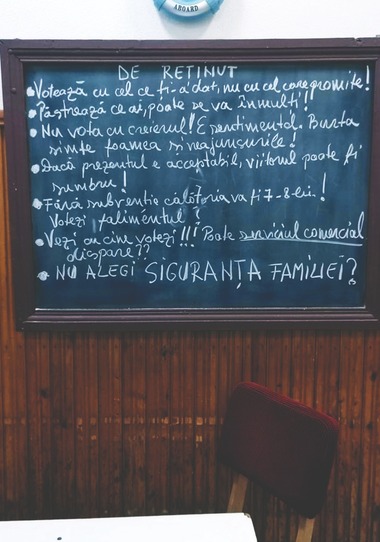 ABOARD
DE REȚINUT
• Votează cu cel ce ți-a dat, nu cu cel care promite!
• Păstrează ce ai, poate se va înmulți!
• Nu vota cu creierul! E sentimental. Burta
simte foamea și neajunsurile!
• Dacă prezentul e acceptabil, viitorul poate fi
sumbru!
• Fără subvenție călătoria va fi 7-8 lei!
Votezi falimentul?
• Vezi cu cine votezi!!! Poate serviciul comercial
dispare!?
• NU ALEGI SIGURANȚA FAMILIEI?